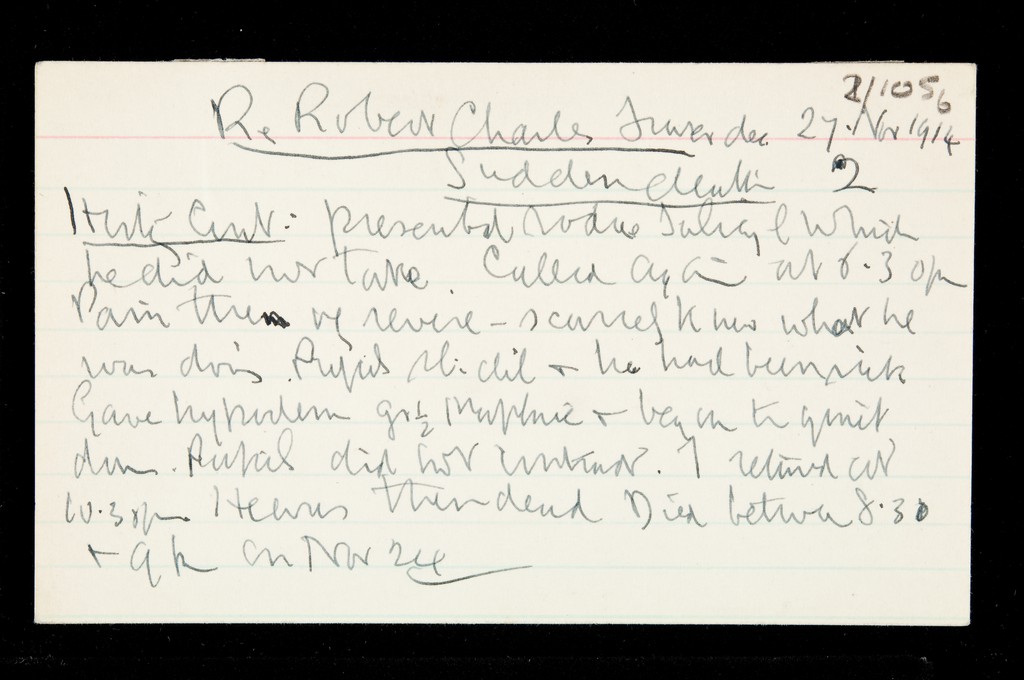 2/1056
Re Robert Charles dec. 27. Nov 1914
Sudden death 2
Histy Cont: presented Sodae Salicyl which
he did not take. Called again at 6.30pm
Pain then vy severe - scarcely knew what he
was doing. Pupils sli. dil + he had been sick
Gave hypoderm gr 1/2 Morphine + began to quiet
down. Pupils did not contract. I returned at
10.30pm. He was then dead Died between 8.30
+ 9 p on Nov 24